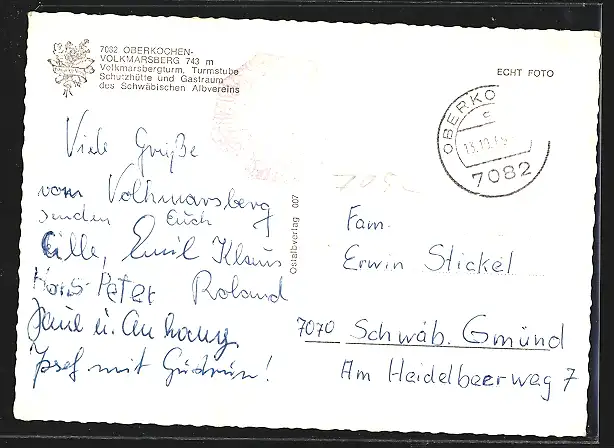 7082 OBERKOCHEN-
VOLKMARSBERG 743 m
Volkmarsbergturm, Turmstube
Schutzhütte und Gastraum
des Schwäbischen Albvereins
ECHT FOTO
OBERKO
c
7082
Viele Grüße
vom Volkmarsberg
senden Euch
Emil Klaus
Hans-Peter Roland
u. Anhang
Josef mit Gudrun!
Ostalbverlag 007
Fam.
Erwin Stickel
7070 Schwäb. Gmünd
Am Heidelbeerweg 7